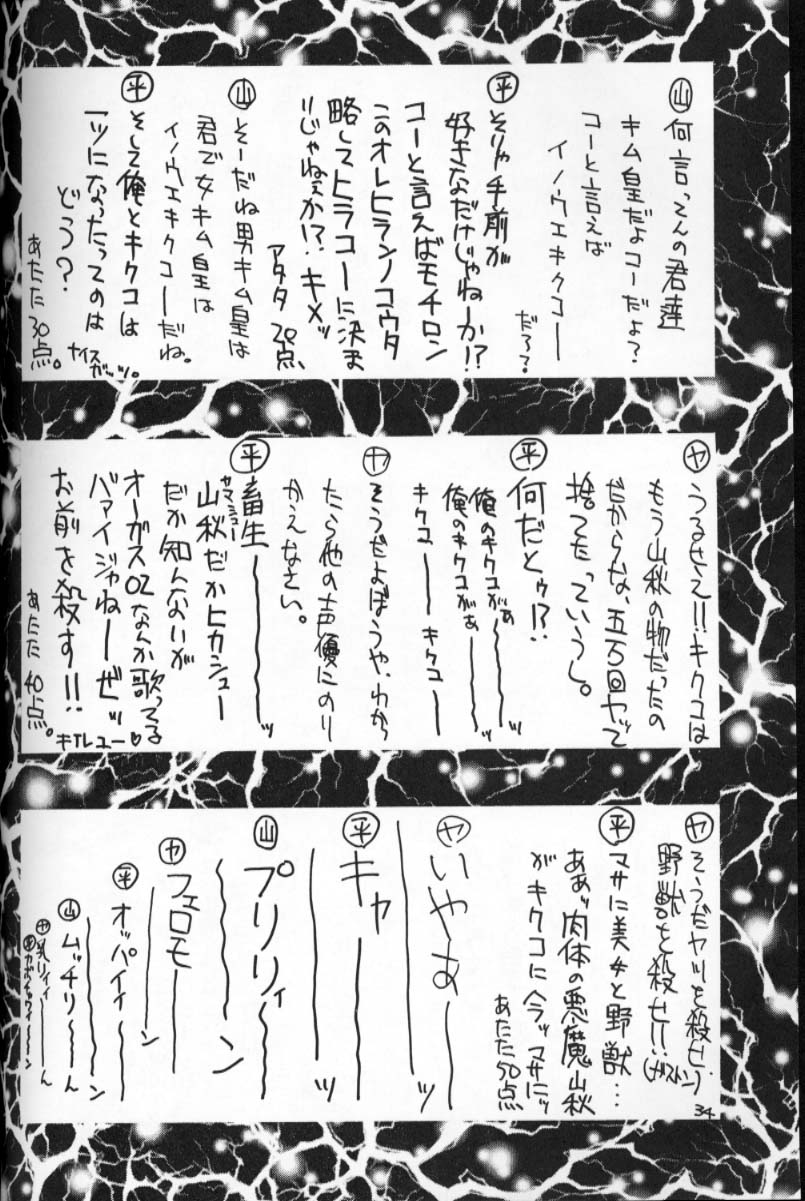 ㊤山 何言ってんの君達
キム皇だよコーだよ?
コーと言えば
イノウエキクコー
だろ?
㊥平 そりゃ手前が
好きなだけじゃねーか!?
コーと言えばモチロン
このオレヒラノコウタ
略してヒラコーに決ま
りじゃねぇか!?キメッ
アタタ 20点、
山 そーだね男キム皇は
君で女キム皇は
イノウエキクコーだね。
平 そして俺とキクコは
一ツになったってのは
どう?
ナイスガッツ。
あたた 30点。
ヤ うるせえ!!キクコは
もう山秋の物だったの
だからな、五万回ヤッて
捨てたっていうし。
平 何だとゥ!?
俺のキクコがぁ〜〜ッ
俺のキクコがぁ〜〜ッ
キクコーー キクコーー
ヤ そうだよぼうや、わかっ
たら他の声優にのり
かえなさい。
平 畜生〜〜〜ッ
山秋だかヒカシュー
ヤマシュー
だか知んないが
オーガス02なんか歌ってる
バァイジャねーぜッ
お前を殺す!!
キTレユー♡
あたた 40点。
ヤ そうだヤツを殺せ、
野獣を殺せ!!(ガストン)
平 マサに美女と野獣…
ああッ肉体の悪魔山秋
がキクコにヘラッマサにッ
あたた50点
ヤ いやあ――ッ
――ッ
平 キャ――ッ
〜〜ッ
山 プリリィ〜〜
〜〜ン
ヤ フェロモ――
――ン
平 オッパイィ〜〜
〜〜ン
山 ムッチリ〜〜ん
ヤ 乳リィィ――ん
34